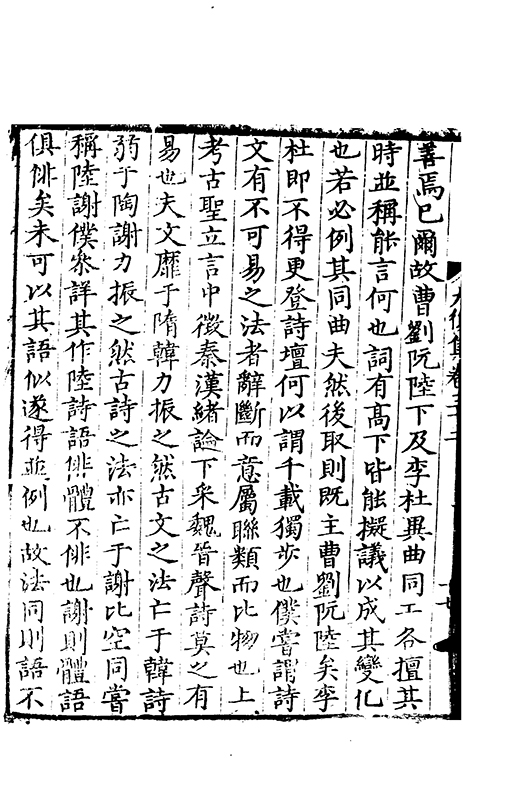 善焉已爾故曹劉阮陸下及李杜異曲同工各擅其
時並稱能言何也詞有高下皆能擬議以成其變化
也若必例其同曲夫然後取則既主曹劉阮陸矣李
杜即不得更登詩壇何以謂千載獨步也僕嘗謂詩
文有不可易之法者辭斷而意屬聯類而比物也上
考古聖立言中徵秦漢緒論下采魏晉聲詩莫之有
易也夫文靡于隋韓力振之然古文之法亡于韓詩
弱于陶謝力振之然古詩之法亦亡于謝比空同嘗
稱陸謝僕參詳其作陸詩語俳體不俳也謝則體語
俱俳矣未可以其語似遂得並例也故法同則語不